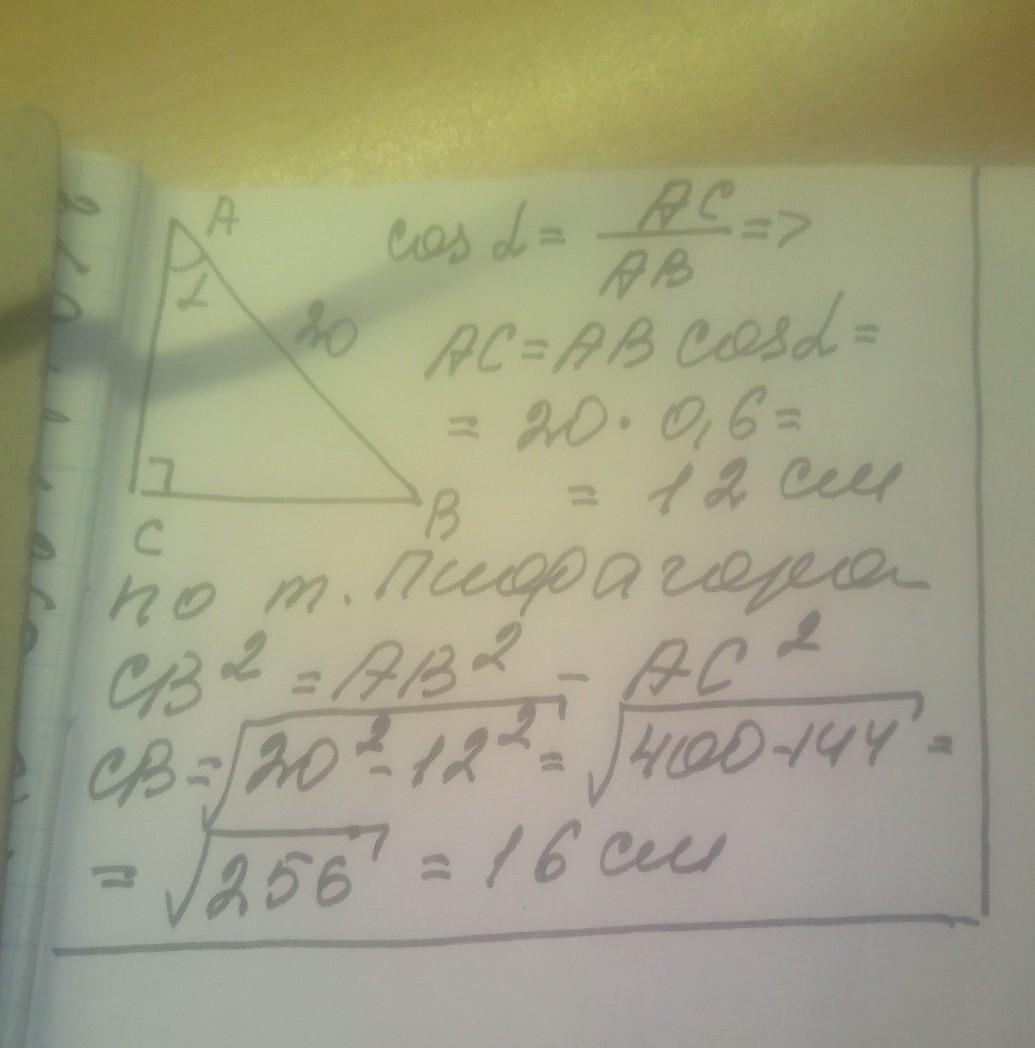 A
α
20
C
B
cos α = AC/AB =>
AC = AB cos α =
= 20 · 0,6 =
= 12 см
по т. Пифагора
CB² = AB² - AC²
CB = √20² - 12² = √400 - 144 =
= √256 = 16 см